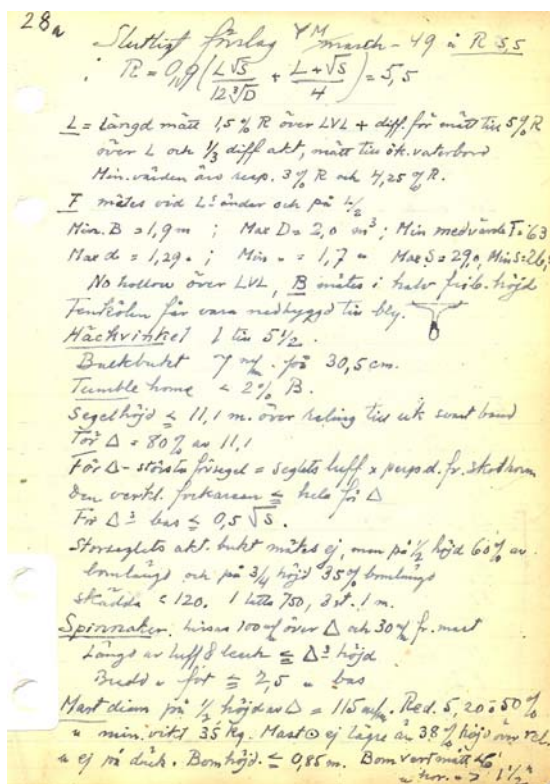 28a
Slutligt förslag YM marsch - 49 å R 5,5
R = 0,9 (L√S / 12∛D + L+√S / 4) = 5,5
L = Längd mätt 1,5% R över LVL + diff. för mått till 5% R
över L och 1/3 diff akt, mätt till ök. vaterbord
Min. värden äro resp. 3% R och 4,25% R.
F mätes vid L:s ändar och på L/2
Min. B = 1,9 m ; Max D = 2,0 m³ ; Min medvärde F = 63
Max d = 1,29 " ; Min " = 1,7 " Max S = 29,0, Min S = 26,5
No hollow över LVL, B mätes i halv frib. höjd
Fenkölen får vara nedbyggd till bly.
Häckvinkel 1 till 5 1/2.
Balkbukt 7 m/m. för 30,5 cm.
Tumble home < 2% B.
Segelhöjd ≤ 11,1 m. över reling till uk svart band
För Δ = 80% av 11,1
För Δ - största försegel = seglets luff x perpd. fr. skothorn
Den verkl. fockarean ≤ hela för Δ
För Δ:s bas ≤ 0,5 √S.
Storseglets akt. bukt mätes ej, men på 1/2 höjd 60% av
bomlängd och på 3/4 höjd 35% bomlängd
Skädda < 120. 1 latta 750, 3 st. 1 m.
Spinnaker. hissas 100 m/m över Δ och 30 m/m fr. mast
Längd av luff & leech ≤ Δ:s höjd
Bredd " fot ≤ 2,5 " bas
Mast diam på 1/2 höjd av Δ = 115 m/m. Red. 5, 20 o 50%
" min. vikt 35 kg. Mast ⊙ ej lägre än 38% höjd över rel.
" ej på däck. Bomhöjd. ≤ 0,85 m. Bom vert mått
" hor. " > 1 1/2"